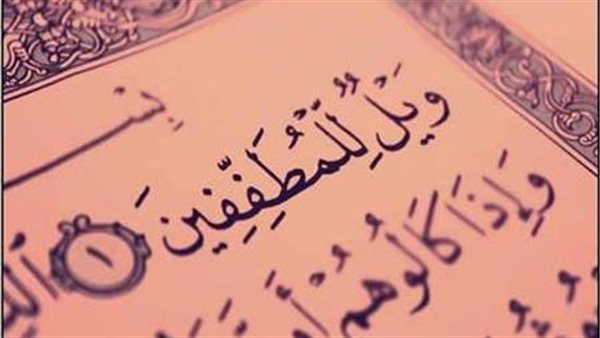 بِسْ
وَيْلٌ لِّلْمُطَفِّفِينَ ١
وَإِذَا كَالُوهُمْ